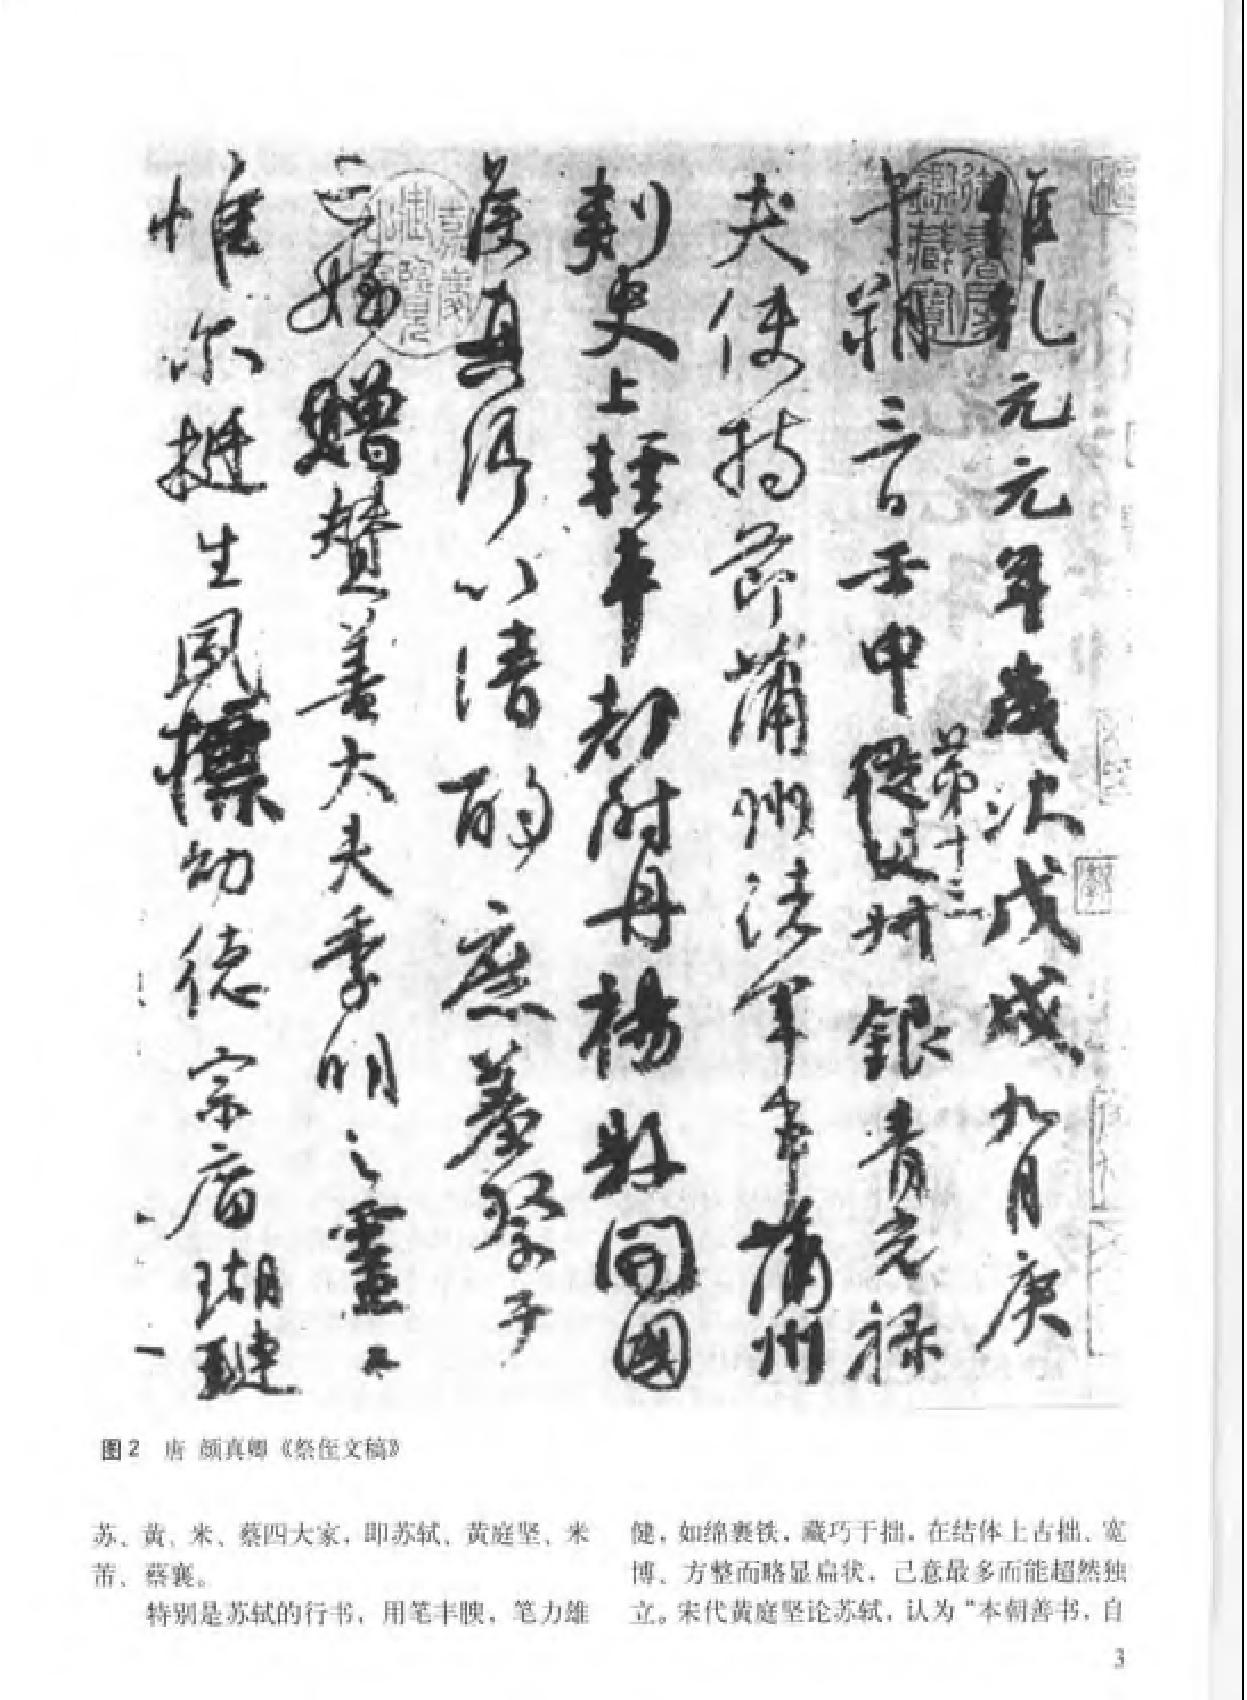 維乾元元年歲次戊戌九月庚
午朔三日壬申從父第十三叔銀青光祿
夫使持節蒲州諸軍事蒲州
刺史上輕車都尉丹楊縣開國
侯真卿以清酌庶羞祭于
亡姪贈贊善大夫季明之靈曰
惟爾挺生夙標幼德宗廟瑚璉
图2 唐 颜真卿《祭侄文稿》
苏、黄、米、蔡四大家，即苏轼、黄庭坚、米
芾、蔡襄。
特别是苏轼的行书，用笔丰腴，笔力雄
健，如绵裹铁，藏巧于拙，在结体上古拙、宽
博、方整而略显扁状，己意最多而能超然独
立。宋代黄庭坚论苏轼，认为“本朝善书，自
3